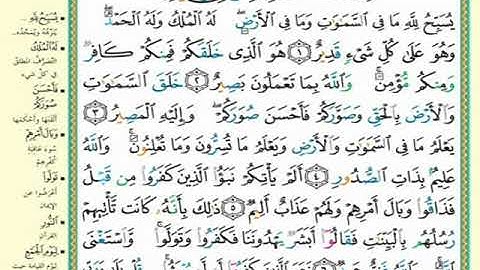 يُسَبِّحُ لِلَّهِ مَا فِي السَّمَاوَاتِ وَمَا فِي الْأَرْضِ لَهُ الْمُلْكُ وَلَهُ الْحَمْدُ
وَهُوَ عَلَىٰ كُلِّ شَيْءٍ قَدِيرٌ ١ هُوَ الَّذِي خَلَقَكُمْ فَمِنكُمْ كَافِرٌ
وَمِنكُم مُّؤْمِنٌ وَاللَّهُ بِمَا تَعْمَلُونَ بَصِيرٌ ٢ خَلَقَ السَّمَاوَاتِ
وَالْأَرْضَ بِالْحَقِّ وَصَوَّرَكُمْ فَأَحْسَنَ صُوَرَكُمْ وَإِلَيْهِ الْمَصِيرُ ٣
يَعْلَمُ مَا فِي السَّمَاوَاتِ وَالْأَرْضِ وَيَعْلَمُ مَا تُسِرُّونَ وَمَا تُعْلِنُونَ وَاللَّهُ
عَلِيمٌ بِذَاتِ الصُّدُورِ ٤ أَلَمْ يَأْتِكُمْ نَبَؤُا الَّذِينَ كَفَرُوا مِن قَبْلُ
فَذَاقُوا وَبَالَ أَمْرِهِمْ وَلَهُمْ عَذَابٌ أَلِيمٌ ٥ ذَٰلِكَ بِأَنَّهُ كَانَت تَّأْتِيهِمْ
رُسُلُهُم بِالْبَيِّنَاتِ فَقَالُوا أَبَشَرٌ يَهْدُونَنَا فَكَفَرُوا وَتَوَلَّوا وَّاسْتَغْنَى
يُسَبِّحُ لِلَّهِ
لَهُ الْمُلْكُ
التصرف المطلق
في كل شيء
فَأَحْسَنَ
صُوَرَكُمْ
وَبَالَ أَمْرِهِمْ
تَوَلَّوا
النُّورِ
القرآن
لِيَوْمِ الْجَمْعِ